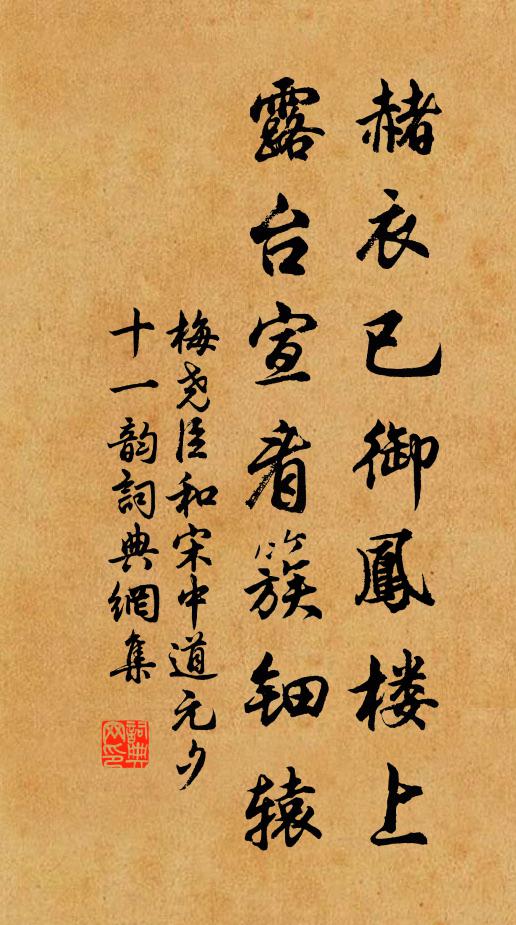 赭衣已御鳳楼上
露台宣看簇钿辕
梅尧臣和宋中道元夕
十一韵詞典網集
詞典網印